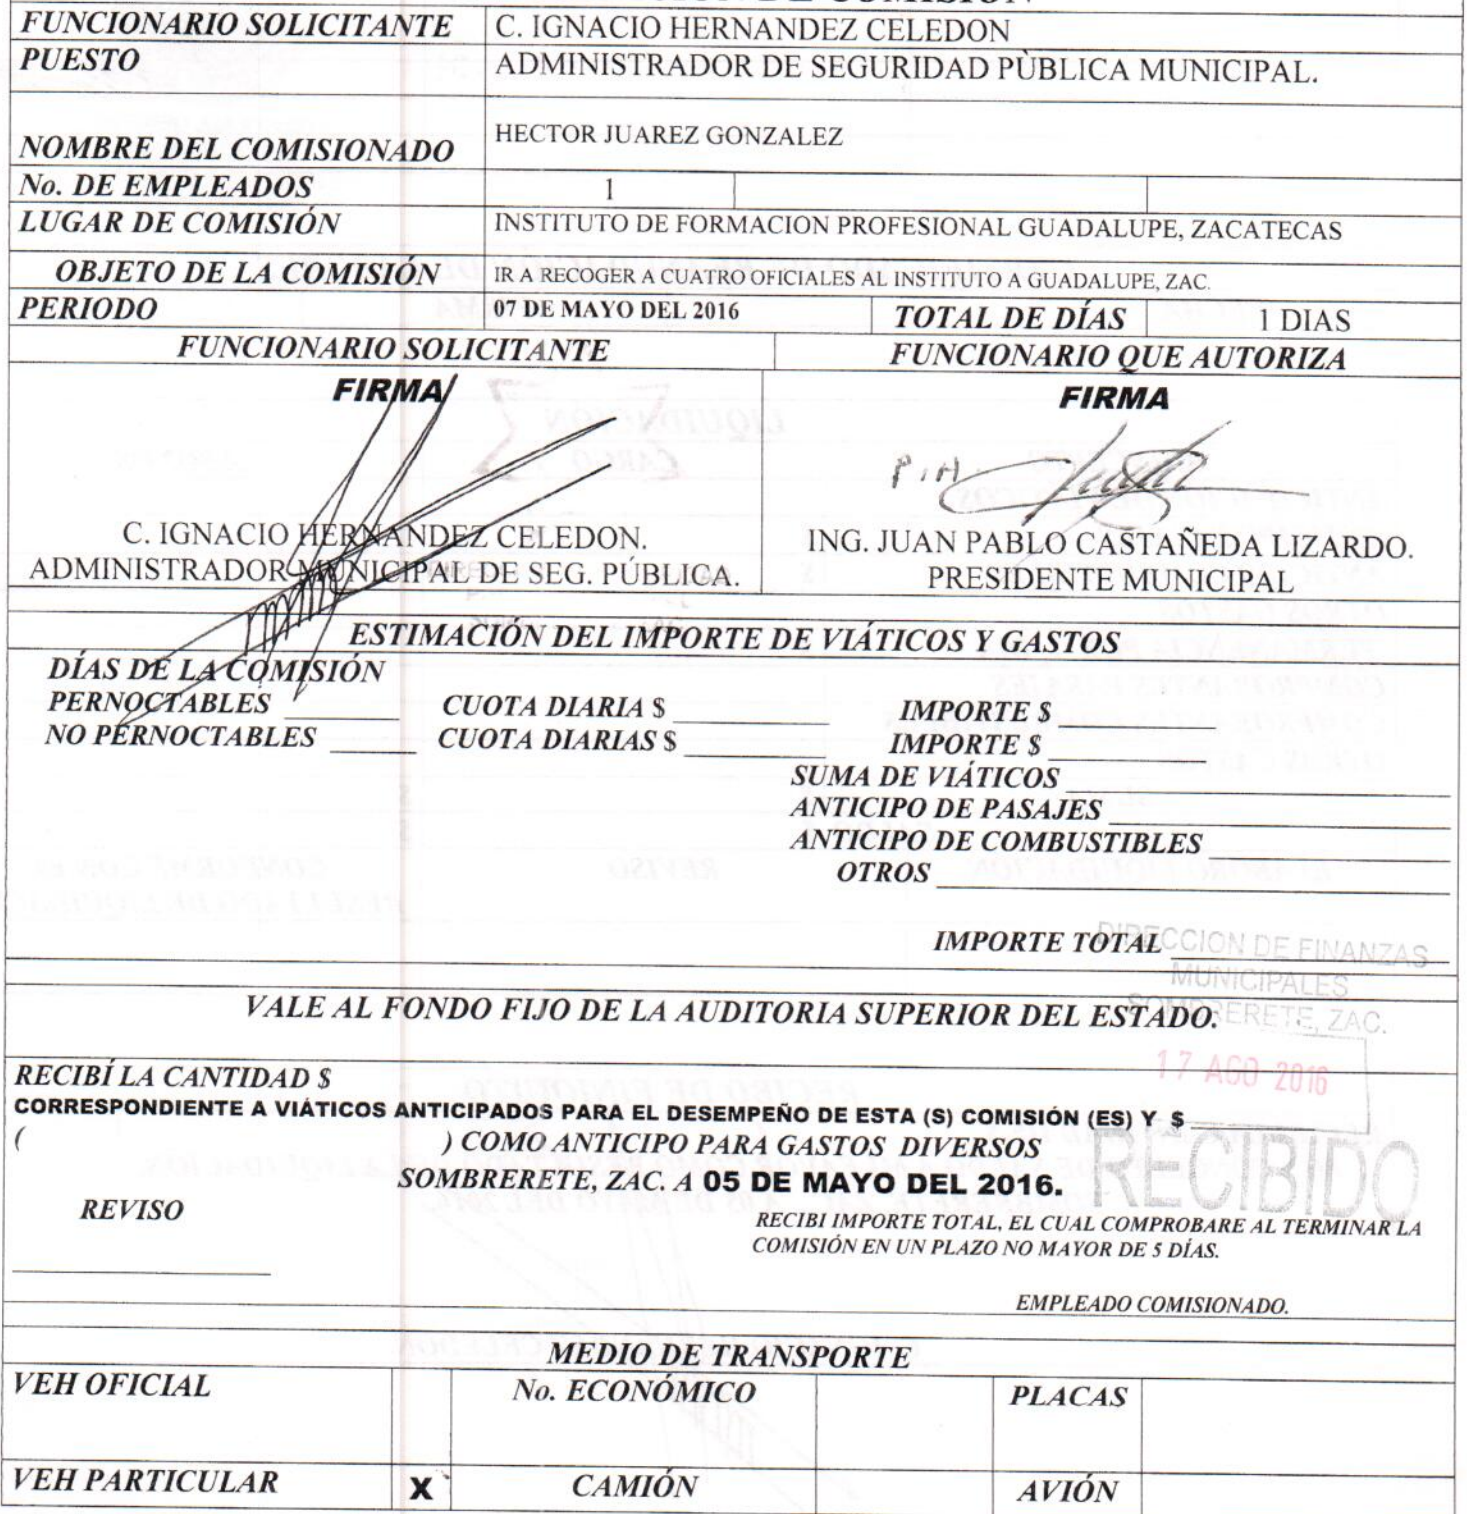 DE COMISIÓN
FUNCIONARIO SOLICITANTE C. IGNACIO HERNANDEZ CELEDON
PUESTO ADMINISTRADOR DE SEGURIDAD PÙBLICA MUNICIPAL.
NOMBRE DEL COMISIONADO HECTOR JUAREZ GONZALEZ
No. DE EMPLEADOS 1
LUGAR DE COMISIÓN INSTITUTO DE FORMACION PROFESIONAL GUADALUPE, ZACATECAS
OBJETO DE LA COMISIÓN IR A RECOGER A CUATRO OFICIALES AL INSTITUTO A GUADALUPE, ZAC.
PERIODO 07 DE MAYO DEL 2016 TOTAL DE DÍAS 1 DIAS
FUNCIONARIO SOLICITANTE FUNCIONARIO QUE AUTORIZA
FIRMA FIRMA
P.A
C. IGNACIO HERNANDEZ CELEDON. ING. JUAN PABLO CASTAÑEDA LIZARDO.
ADMINISTRADOR MUNICIPAL DE SEG. PÚBLICA. PRESIDENTE MUNICIPAL
ESTIMACIÓN DEL IMPORTE DE VIÁTICOS Y GASTOS
DÍAS DE LA COMISIÓN
PERNOCTABLES CUOTA DIARIA $ IMPORTE $
NO PERNOCTABLES CUOTA DIARIAS $ IMPORTE $
SUMA DE VIÁTICOS
ANTICIPO DE PASAJES
ANTICIPO DE COMBUSTIBLES
OTROS
IMPORTE TOTAL
DIRECCION DE FINANZAS
MUNICIPALES
SOMBRERETE, ZAC.
VALE AL FONDO FIJO DE LA AUDITORIA SUPERIOR DEL ESTADO.
17 AGO 2016
RECIBÍ LA CANTIDAD $
CORRESPONDIENTE A VIÁTICOS ANTICIPADOS PARA EL DESEMPEÑO DE ESTA (S) COMISIÓN (ES) Y $
( ) COMO ANTICIPO PARA GASTOS DIVERSOS
RECIBIDO
SOMBRERETE, ZAC. A 05 DE MAYO DEL 2016.
REVISO
RECIBI IMPORTE TOTAL, EL CUAL COMPROBARE AL TERMINAR LA
COMISIÓN EN UN PLAZO NO MAYOR DE 5 DÍAS.
EMPLEADO COMISIONADO.
MEDIO DE TRANSPORTE
VEH OFICIAL No. ECONÓMICO PLACAS
VEH PARTICULAR X CAMIÓN AVIÓN